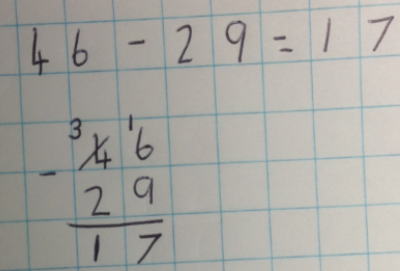 46 - 29 = 17
3 1
- 4 6
2 9
1 7